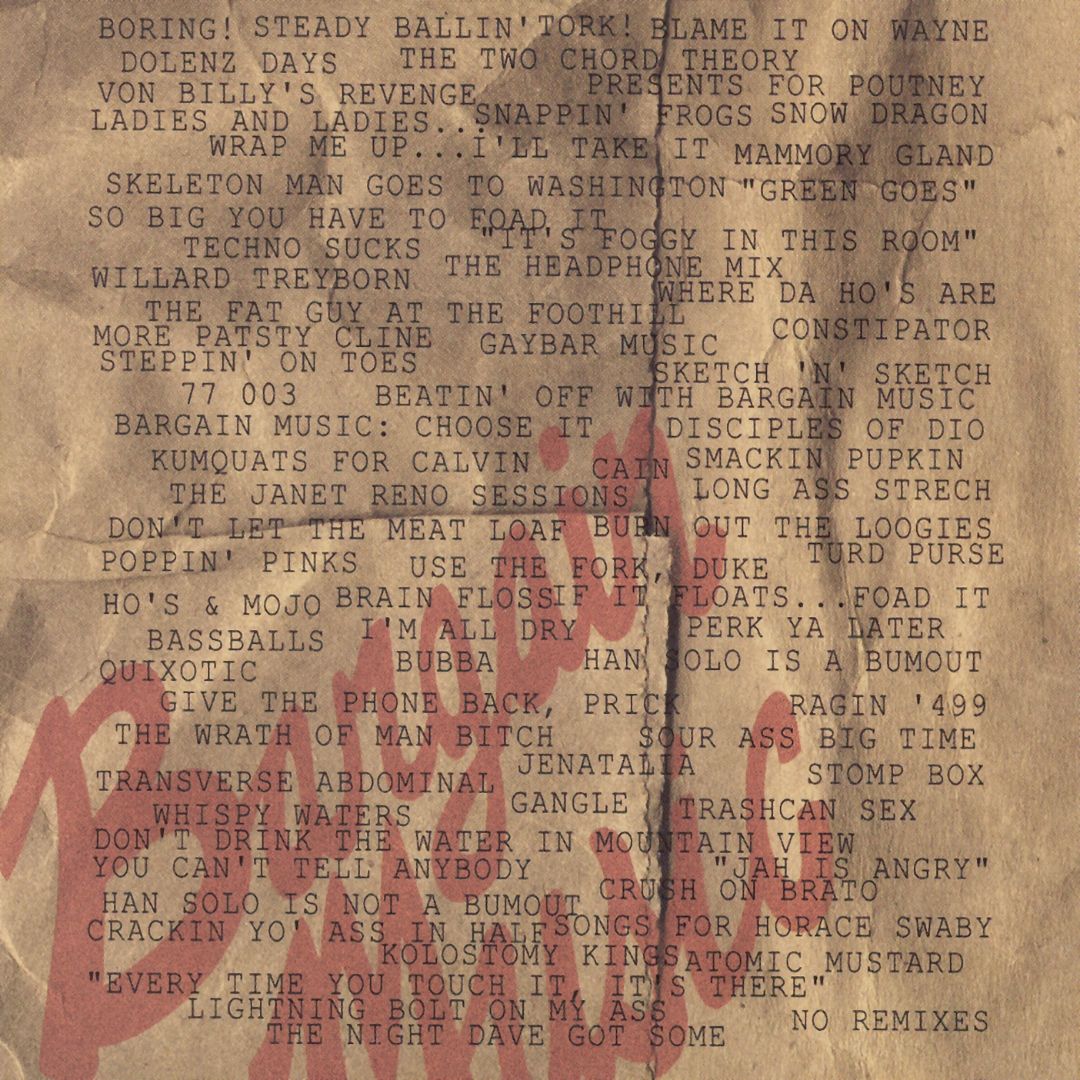 BORING! STEADY BALLIN' TORK! BLAME IT ON WAYNE
DOLENZ DAYS THE TWO CHORD THEORY
VON BILLY'S REVENGE PRESENTS FOR POUTNEY
LADIES AND LADIES... SNAPPIN' FROGS SNOW DRAGON
WRAP ME UP...I'LL TAKE IT MAMMORY GLAND
SKELETON MAN GOES TO WASHINGTON "GREEN GOES"
SO BIG YOU HAVE TO FOAD IT
TECHNO SUCKS "IT'S FOGGY IN THIS ROOM"
WILLARD TREYBORN THE HEADPHONE MIX
WHERE DA HO'S ARE
THE FAT GUY AT THE FOOTHILL
MORE PATSTY CLINE GAYBAR MUSIC CONSTIPATOR
STEPPIN' ON TOES SKETCH 'N' SKETCH
77 003 BEATIN' OFF WITH BARGAIN MUSIC
BARGAIN MUSIC: CHOOSE IT DISCIPLES OF DIO
KUMQUATS FOR CALVIN CAIN SMACKIN PUPKIN
THE JANET RENO SESSIONS LONG ASS STRECH
DON'T LET THE MEAT LOAF BURN OUT THE LOOGIES
POPPIN' PINKS USE THE FORK, DUKE TURD PURSE
HO'S & MOJO BRAIN FLOSS IF IT FLOATS...FOAD IT
BASSBALLS I'M ALL DRY PERK YA LATER
QUIXOTIC BUBBA HAN SOLO IS A BUMOUT
GIVE THE PHONE BACK, PRICK RAGIN '499
THE WRATH OF MAN BITCH SOUR ASS BIG TIME
TRANSVERSE ABDOMINAL JENATALIA STOMP BOX
WHISPY WATERS GANGLE TRASHCAN SEX
DON'T DRINK THE WATER IN MOUNTAIN VIEW
YOU CAN'T TELL ANYBODY "JAH IS ANGRY"
HAN SOLO IS NOT A BUMOUT CRUSH ON BRATO
CRACKIN YO' ASS IN HALF SONGS FOR HORACE SWABY
KOLOSTOMY KINGS ATOMIC MUSTARD
"EVERY TIME YOU TOUCH IT, IT'S THERE"
LIGHTNING BOLT ON MY ASS NO REMIXES
THE NIGHT DAVE GOT SOME
Bargain
Music